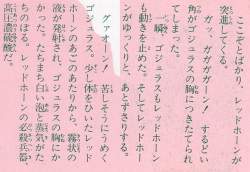 ここぞとばかり、レッドホーンが
突進してくる。
ガッ、ガガガガーン！　するどい
角がゴジュラスの胸につきたてられ
てしまった。
一瞬、ゴジュラスもレッドホーン
も動きを止めた。そしてレッドホー
ンがゆっくりと、あとずさりする。
グァオーン！　苦しそうにうめく
ゴジュラス。少し体をひいたレッド
ホーンのあごのあたりから、霧状の
液が発射され、ゴジュラスの胸にか
かった。たちまち白い泡と蒸気がた
ちのぼる。レッドホーンの必殺兵器、
高圧濃硫酸だ。